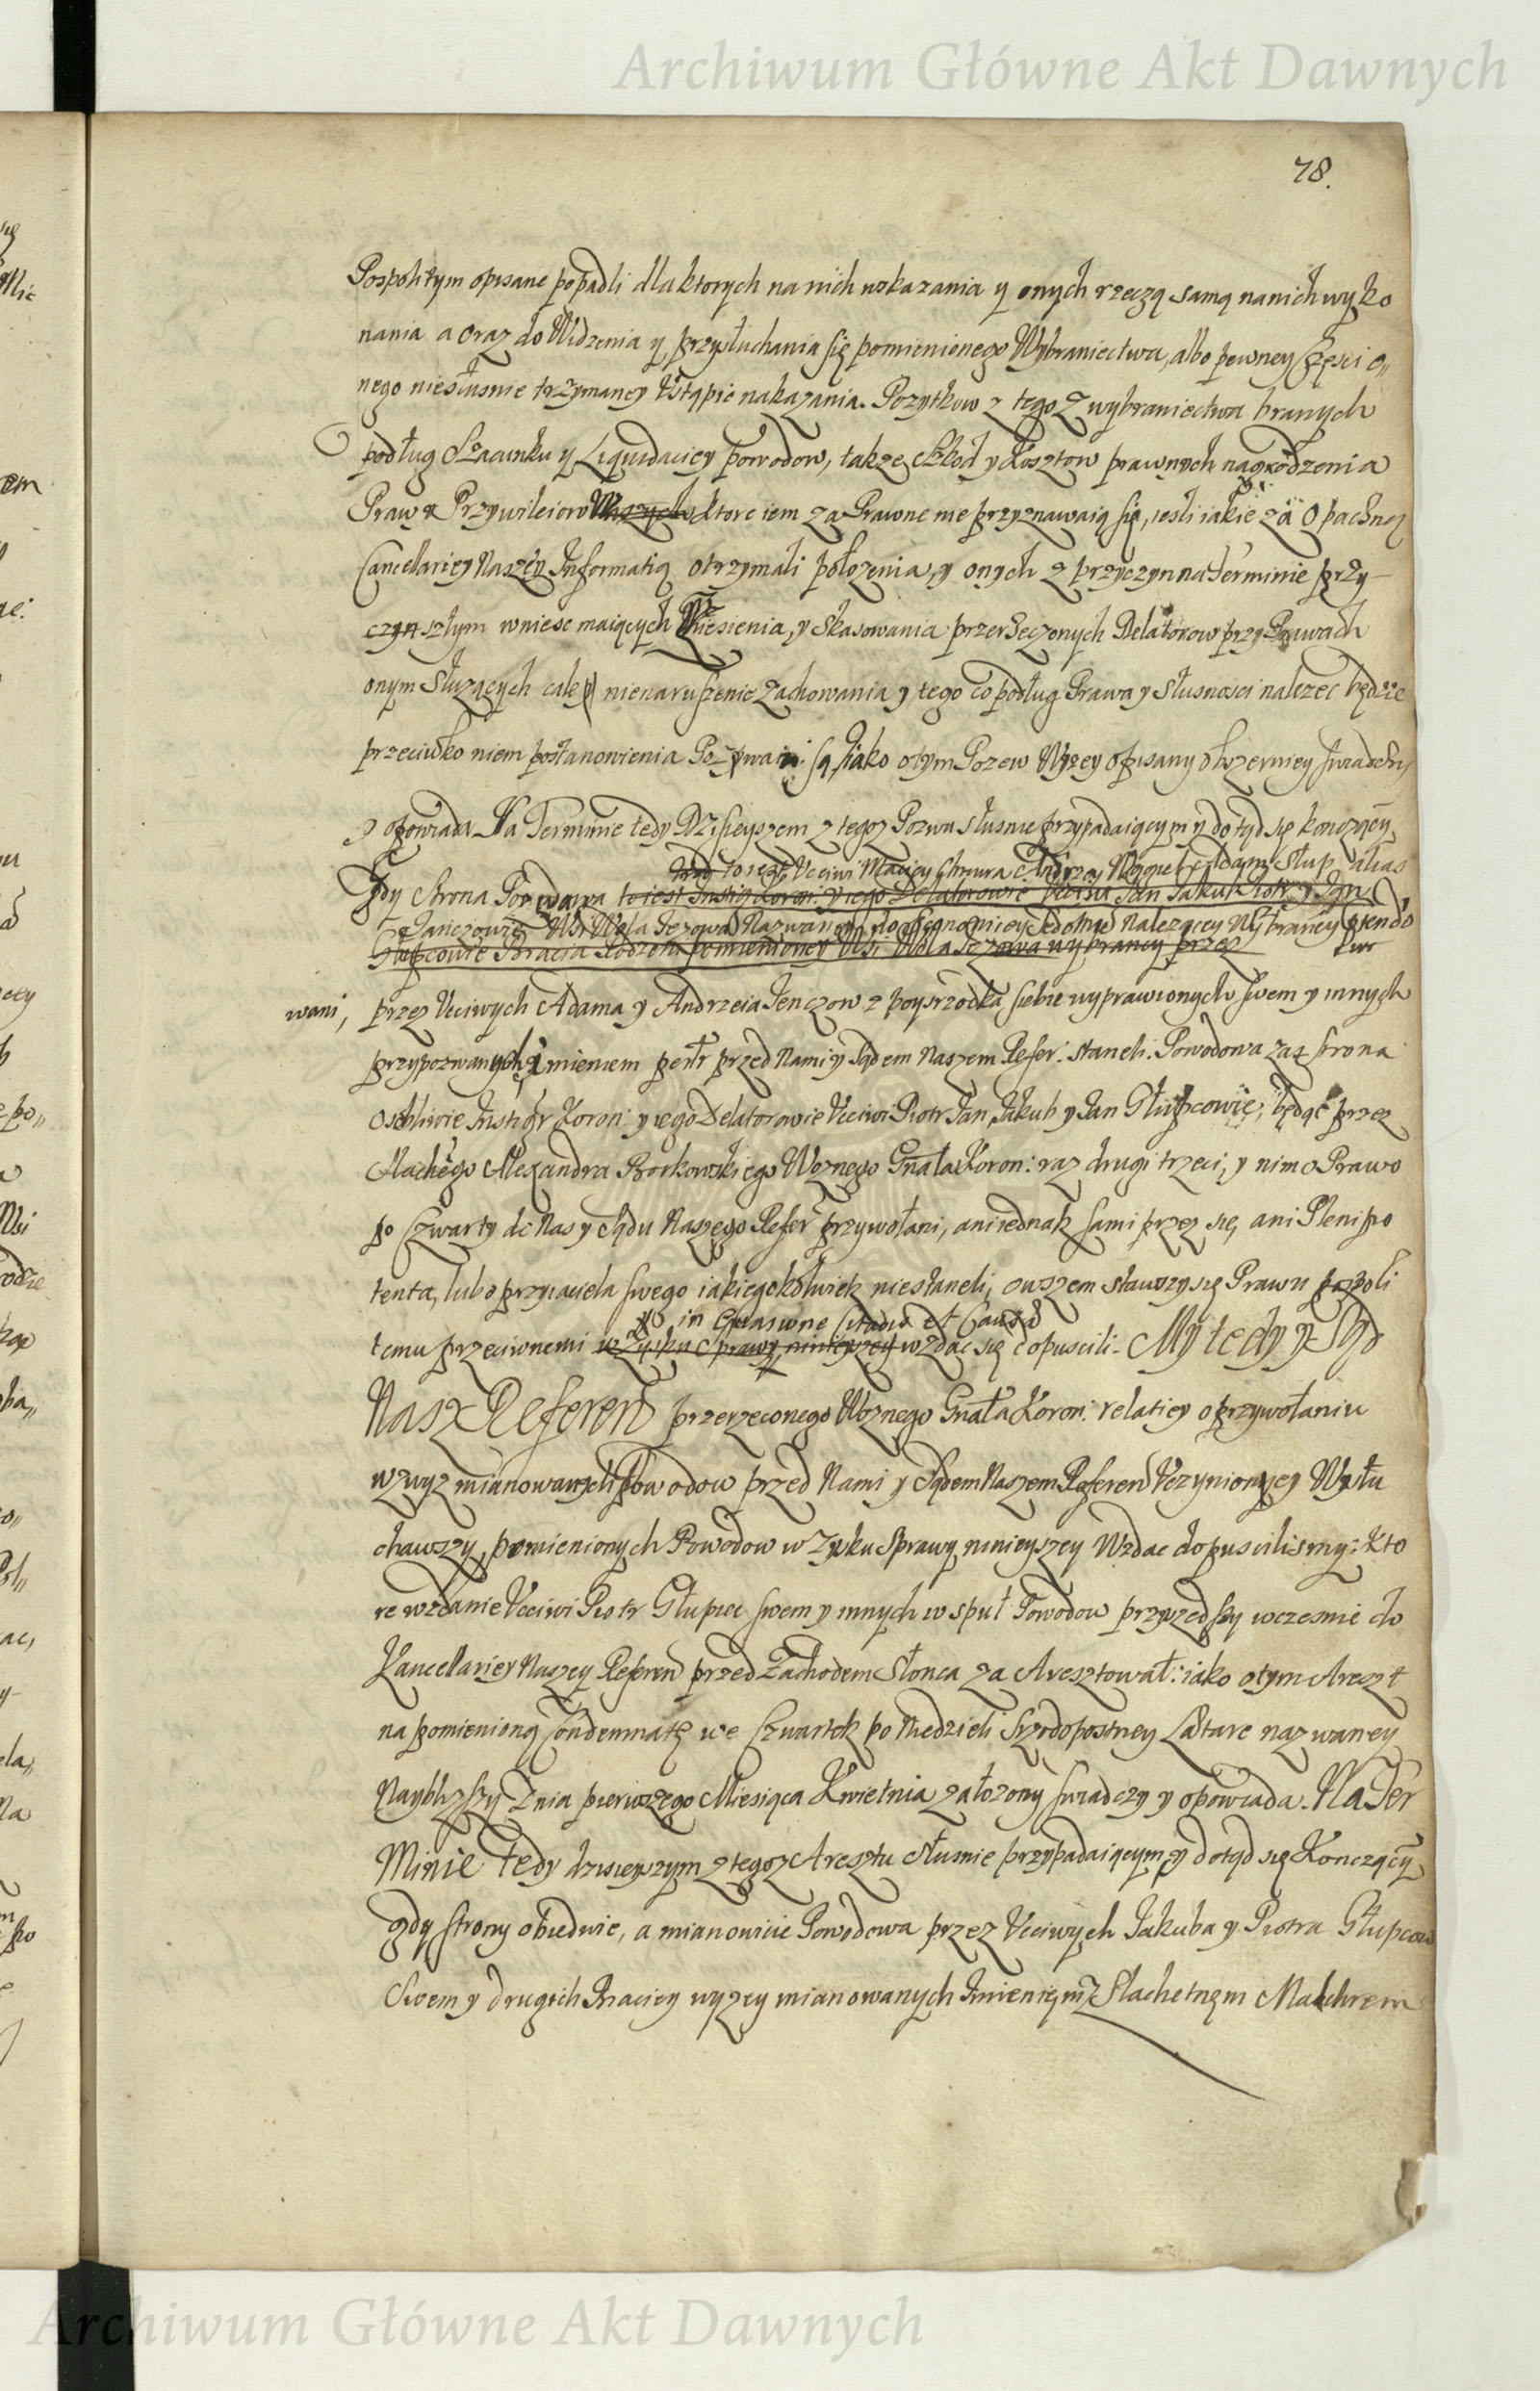 Archiwum Główne Akt Dawnych
78.
Pospolitym opisane popadli dla ktorych na nich wskazania y onych rzeczą samą na nich wyko
nania a oraz do Widzenia y przysłuchania się pomienionego Wybraniectwa, albo pewney Częsci o„
nego niesłusnie trzymaney Ustąpić nakazania. Pozytkow z tego Z wybraniectwa branych
podług Szacunku y Liquidaciey powodow, takze Szkod y Kosztow prawnych nagrodzenia
Praw y Przywileiow Naszych ktore iem za Prawne nie przyznawaią się, iesli iakie za Opaczną
Cancellariey Naszey Informatią otrzymali połozenia, y onych z przyczyn na Terminie przy-
czyn szłym wniesc maiących Wniesienia, y Skasowania przerzeczonych Delatorow przy Prawach
onym Słuzących cale y nienaruszenie Zachowania y tego co podług Prawa y Słusnosci nalezec będzie
przeciwko niem postanowienia Pozywani są, iako otym Pozew Wyzey opisany obszerniey swiadczy
y opowiada. Na Terminie tedy Dzisieyszem z tegoz Pozwu słusnie przypadaiącym y dotąd się konczącym,
to iest Ucciwi Maciey Chmura Andrzey Adam Słup alias
Gdy strona Pozwana to iest Instig. Koron: y iego Delatorowie Ucciwi Jan Jakub Piotr y Jan
Janczowie Wsi Wola Jezowa Nazwaney do Nalezącey Wybrancy
Głupcowie Bracia Rodzeni pomienioney Wsi Wola Jezowa wybrancy przez
wani, przez Ucciwych Adama y Andrzeia Jenczow z poysrzodka siebie wyprawionych swem y innych
przypozwanych imieniem perłr przed Nami y Sądem Naszem Refer: staneli. Powodowa zas strona
osobliwie Instigr Koron: y iego Delatorowie Ucciwi Piotr Jan Jakub y Jan Głupcowie, będąc przez
Slachego Alexandra Borkowskiego Woznego Gnała Koron: raz drugi trzeci, y nimo Prawo
po Czwarty do Nas y Sądu Naszego Refer przywołani, ani iednak sami przez się, ani Plenipo
tenta, lubo przyiaciela swego iakiegokolwiek niestaneli, owszem stawszy się Prawu pospoli
in Citatio et Causa
temu przeciwnemi w Zysku Sprawy ninieyszey wzdac się dopuscili. My tedy y Sąd
Nasz Referen przerzeconego Woznego Gnała Koron: relatiey o przywołaniu
wzwyz mianowanych Powodow przed Nami y Sądem Naszem Referen Uczynioney Wysłu
chawszy, pomienionych Powodow w Zysku Sprawy ninieyszey Wzdac dopuscilismy: Kto
re wzdanie Ucciwi Piotr Głupiec swem y innych wspuł Powodow przyszedszy wczesnie do
Kancellariey Naszey Referen przed Zachodem Słonca za Aresztował: iako otym Areszt
na pomienioną Condemnatę we Czwartek po Niedzieli Srzodopostney Lætare nazwaney
Naybliższy Dnia pierwszego Miesiąca Kwietnia załozony swiadczy y opowiada. Na Ter
minie tedy dzisieyszym z tegoz Aresztu słusnie przypadaiącym y dotąd się Konczącym,
gdy strony obiedwie, a mianowicie Powodowa przez Ucciwych Jakuba y Piotra Głupcow
Swem y drugich Braciey wyzey mianowanych Imieniem Z Slachetnem Malchrem
Archiwum Główne Akt Dawnych